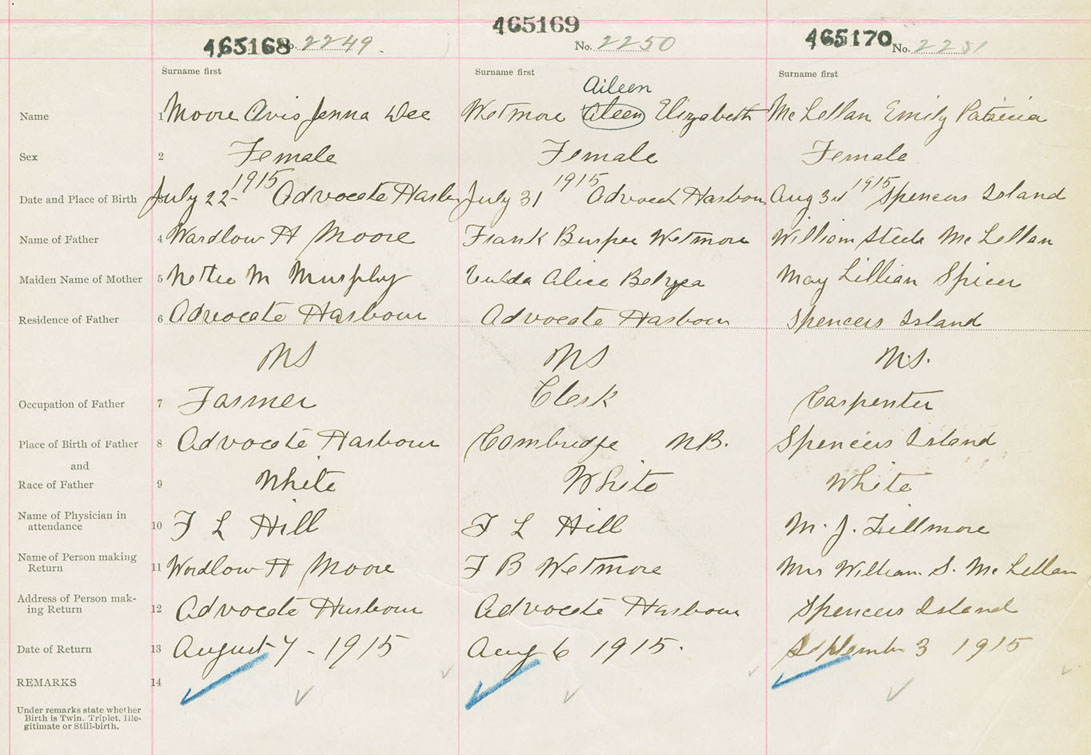 465168 No. 2249.
465169
No. 2250
465170 No. 2251
Surname first
Surname first
Surname first
Name 1 Moore Avis Jenna Dee
Aileen
Wetmore Aleen Elizabeth
McLellan Emily Patricia
Sex 2 Female
Female
Female
Date and Place of Birth July 22 1915 Advocate Harbor
July 31 1915 Advocate Harbour
Aug 3rd 1915 Spencers Island
Name of Father 4 Wardlow H Moore
Frank Burper Wetmore
William Steele McLellan
Maiden Name of Mother 5 Nettie M Murphy
Alice Belyea
May Lillian Spicer
Residence of Father 6 Advocate Harbour
Advocate Harbour
Spencers Island
NS
NS
N.S.
Occupation of Father 7 Farmer
Clerk
Carpenter
Place of Birth of Father 8 Advocate Harbour
Cambridge NB.
Spencers Island
and
Race of Father 9 White
White
White
Name of Physician in
attendance 10 F L Hill
F L Hill
M. J. Fillmore
Name of Person making
Return 11 Wardlow H Moore
F B Wetmore
Mrs William S. McLellan
Address of Person mak-
ing Return 12 Advocate Harbour
Advocate Harbour
Spencers Island
Date of Return 13 August 7 - 1915
Aug 6 1915.
September 3 1915
REMARKS 14
Under remarks state whether
Birth is Twin, Triplet, Ille-
gitimate or Still-birth.